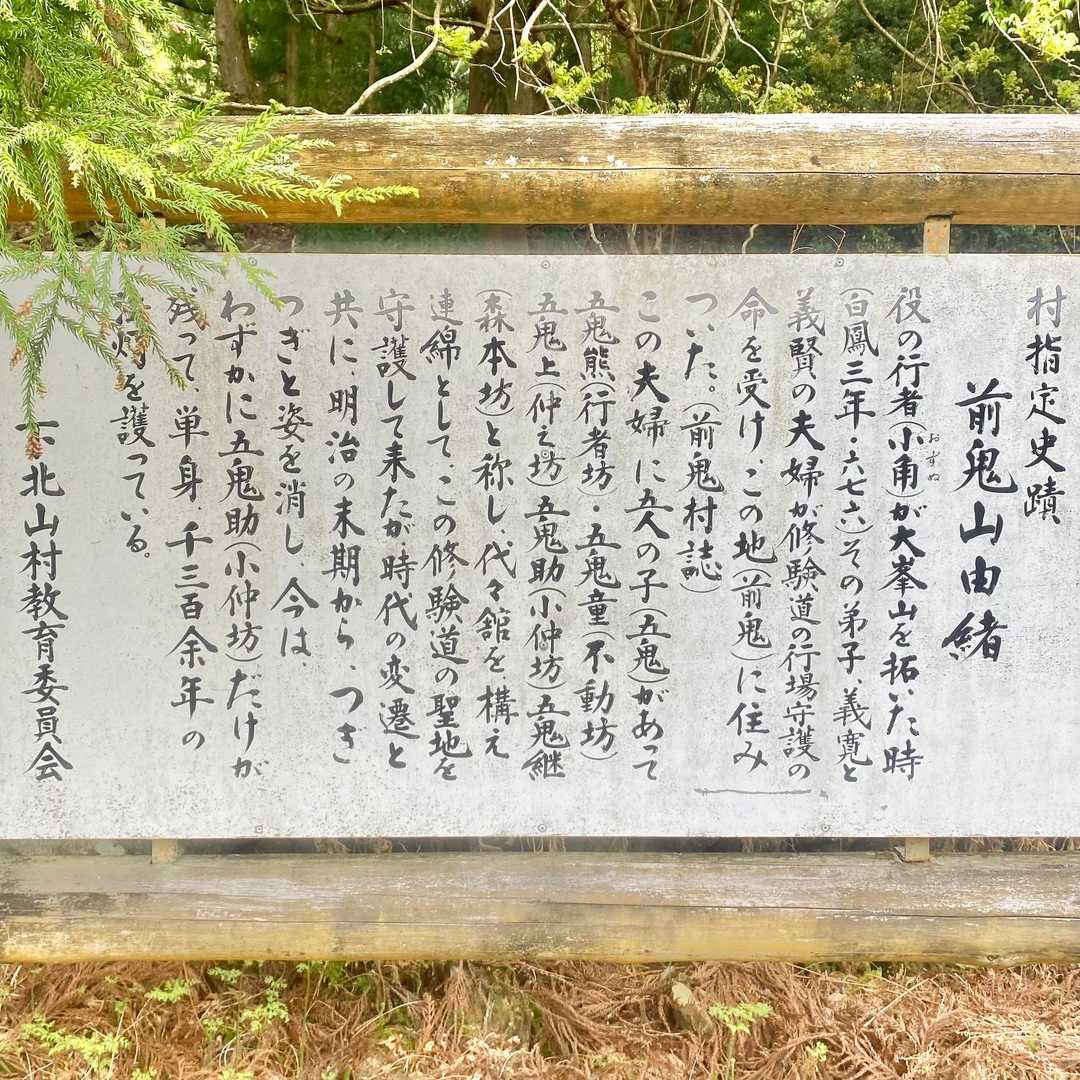 村指定史蹟
前鬼山由緒
役の行者(小角)が大峯山を拓いた時
おずぬ
(白鳳三年・六七六)その弟子、義寛と
義賢の夫婦が修験道の行場守護の
命を受け、この地(前鬼)に住み
ついた。(前鬼村誌)
この夫婦に五人の子(五鬼)があって
五鬼熊(行者坊)・五鬼童(不動坊)
五鬼上(仲之坊)五鬼助(小仲坊)五鬼継
(森本坊)と称し、代々舘を構え
連綿として、この修験道の聖地を
守護して来たが時代の変遷と
共に明治の末期から、つぎ
つぎと姿を消し、今は、
わずかに五鬼助(小仲坊)だけが
残って、単身、千三百余年の
灯を護っている。
北山村教育委員会